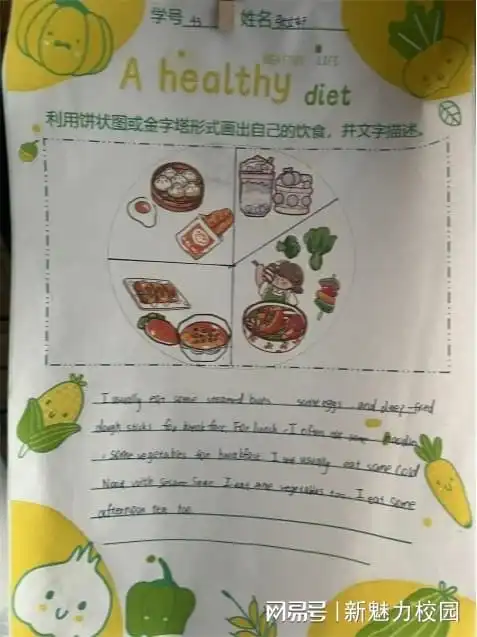 学号 43 姓名
HEALTHY LIFE
A healthy diet
利用饼状图或金字塔形式画出自己的饮食，并文字描述。
I usually eat some steamed buns some eggs and deep-fried
dough sticks for breakfast. For lunch I often eat some
some vegetables for breakfast. I usually eat some cold
with sesame I eat vegetables too. I eat some
afternoon tea too
网易号 | 新魅力校园